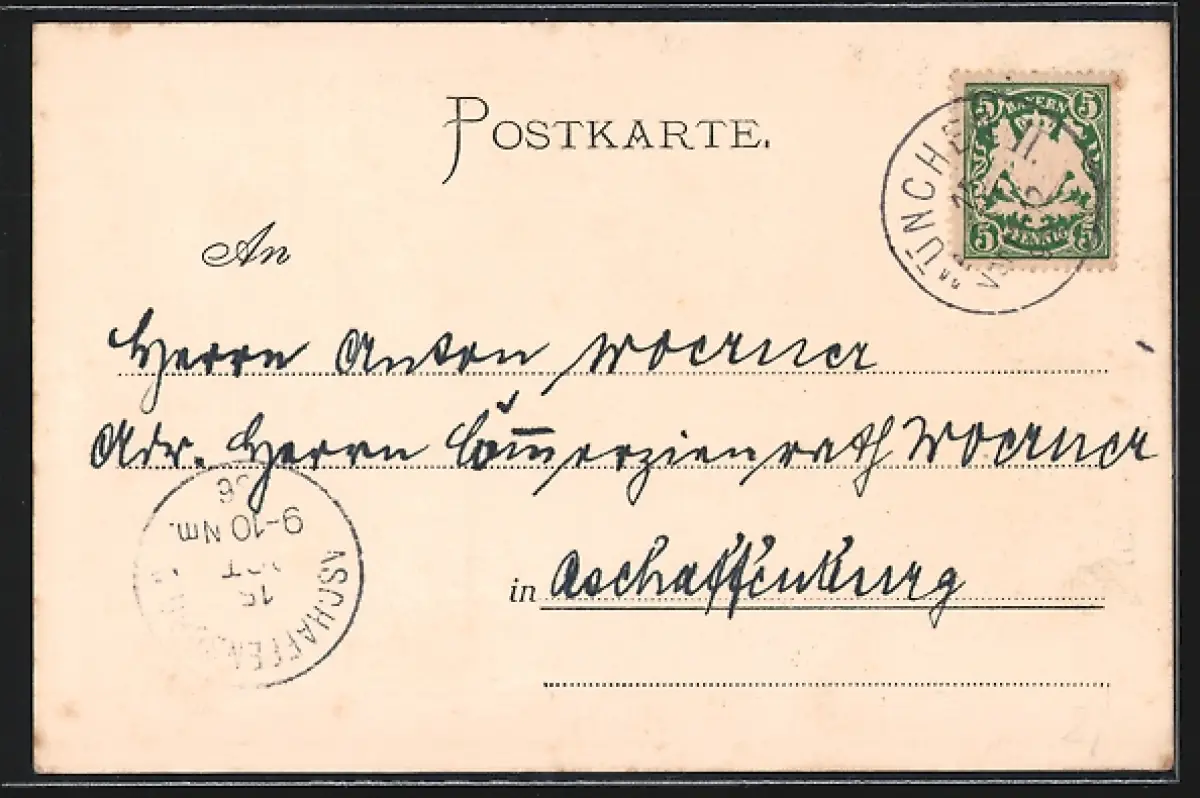 POSTKARTE.
5 BAYERN 5
5 PFENNIG 5
MÜNCHEN II.
An
Herrn Anton Woerner
Adr. Herrn Com̄erzienrath Woerner
in Aschaffenburg
ASCHAFFEN
9-10 Nm.